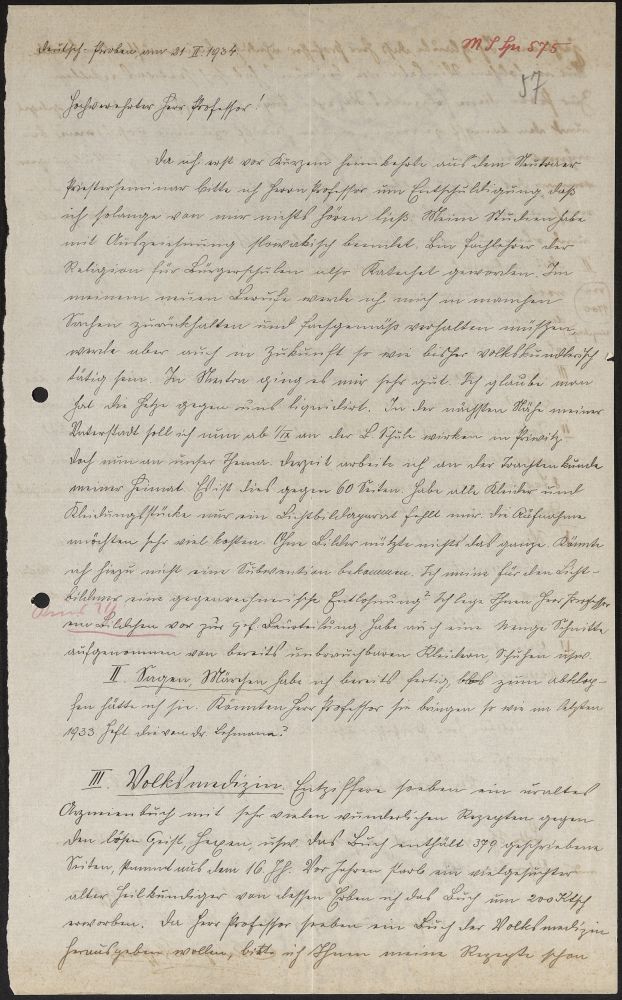 Deutsch-Proben am 21. II. 1934
M S Gr 575
57
Hochverehrter Herr Professor!
Da ich erst vor Kurzem heimkehrte aus dem Neutraer
Priesterseminar bitte ich Herrn Professor um Entschuldigung, daß
ich solange von mir nichts hören ließ. Meine Studien habe
mit Auszeichnung slowakisch beendet. Bin Fachlehrer der
Religion für Bürgerschulen also Katechet geworden. Im
meinem neuen Berufe werde ich mich in manchen
Sachen zurückhalten und fachgemäß verhalten müssen,
werde aber auch in Zukunft so wie bisher volkskundlerisch
tätig sein. In Neutra ging es mir sehr gut. Ich glaube man
hat die Hetze gegen uns liquidirt. In der nächsten Nähe meiner
Vaterstadt soll ich nun ab an der B. Schule wirken in Priwitz.
Doch nun an unser Thema. Derzeit arbeite ich an der Trachtenkunde
meiner Heimat. Es ist dies gegen 60 Seiten. Habe alle Kleider und
Kleidungsstücke nur ein Lichtbildaparat fehlt mir. Die Aufnahme
möchten sehr viel kosten. Ohne Bilder nützte nichts das ganze. Könnte
ich hiezu nicht eine Subvention bekommen. Ich meine für den Licht-
bildner eine Entlohnung? Ich lege Ihnen Herr Professor
ein Bildchen vor zur gef. Beurteilung. Habe auch eine Menge Schnitte
aufgenommen von bereits unbrauchbaren Kleidern, Schuhen usw.
II. Sagen, Märchen habe ich bereits fertig, blos zum abklop-
fen hätte ich sie. Könnten Herr Professor sie bringen so wie im letzten
1933 Heft die von Dr. Lehmann?
III. Volksmedizin. Entziffere soeben ein uraltes
Arzneienbuch mit sehr vielen wunderlichen Rezepten gegen
den bösen Geist, Hexen, usw. das Buch enthält 379 geschriebene
Seiten, stammt aus dem 16. Jh. Vor Jahren starb ein vielgesuchter
alter Heilkundiger von dessen Erben ich das Buch um 200 Ktsch
erworben. Da Herr Professor soeben ein Buch der Volksmedizin
herausgeben wollen, bitte ich Ihnen meine Rezepte schon